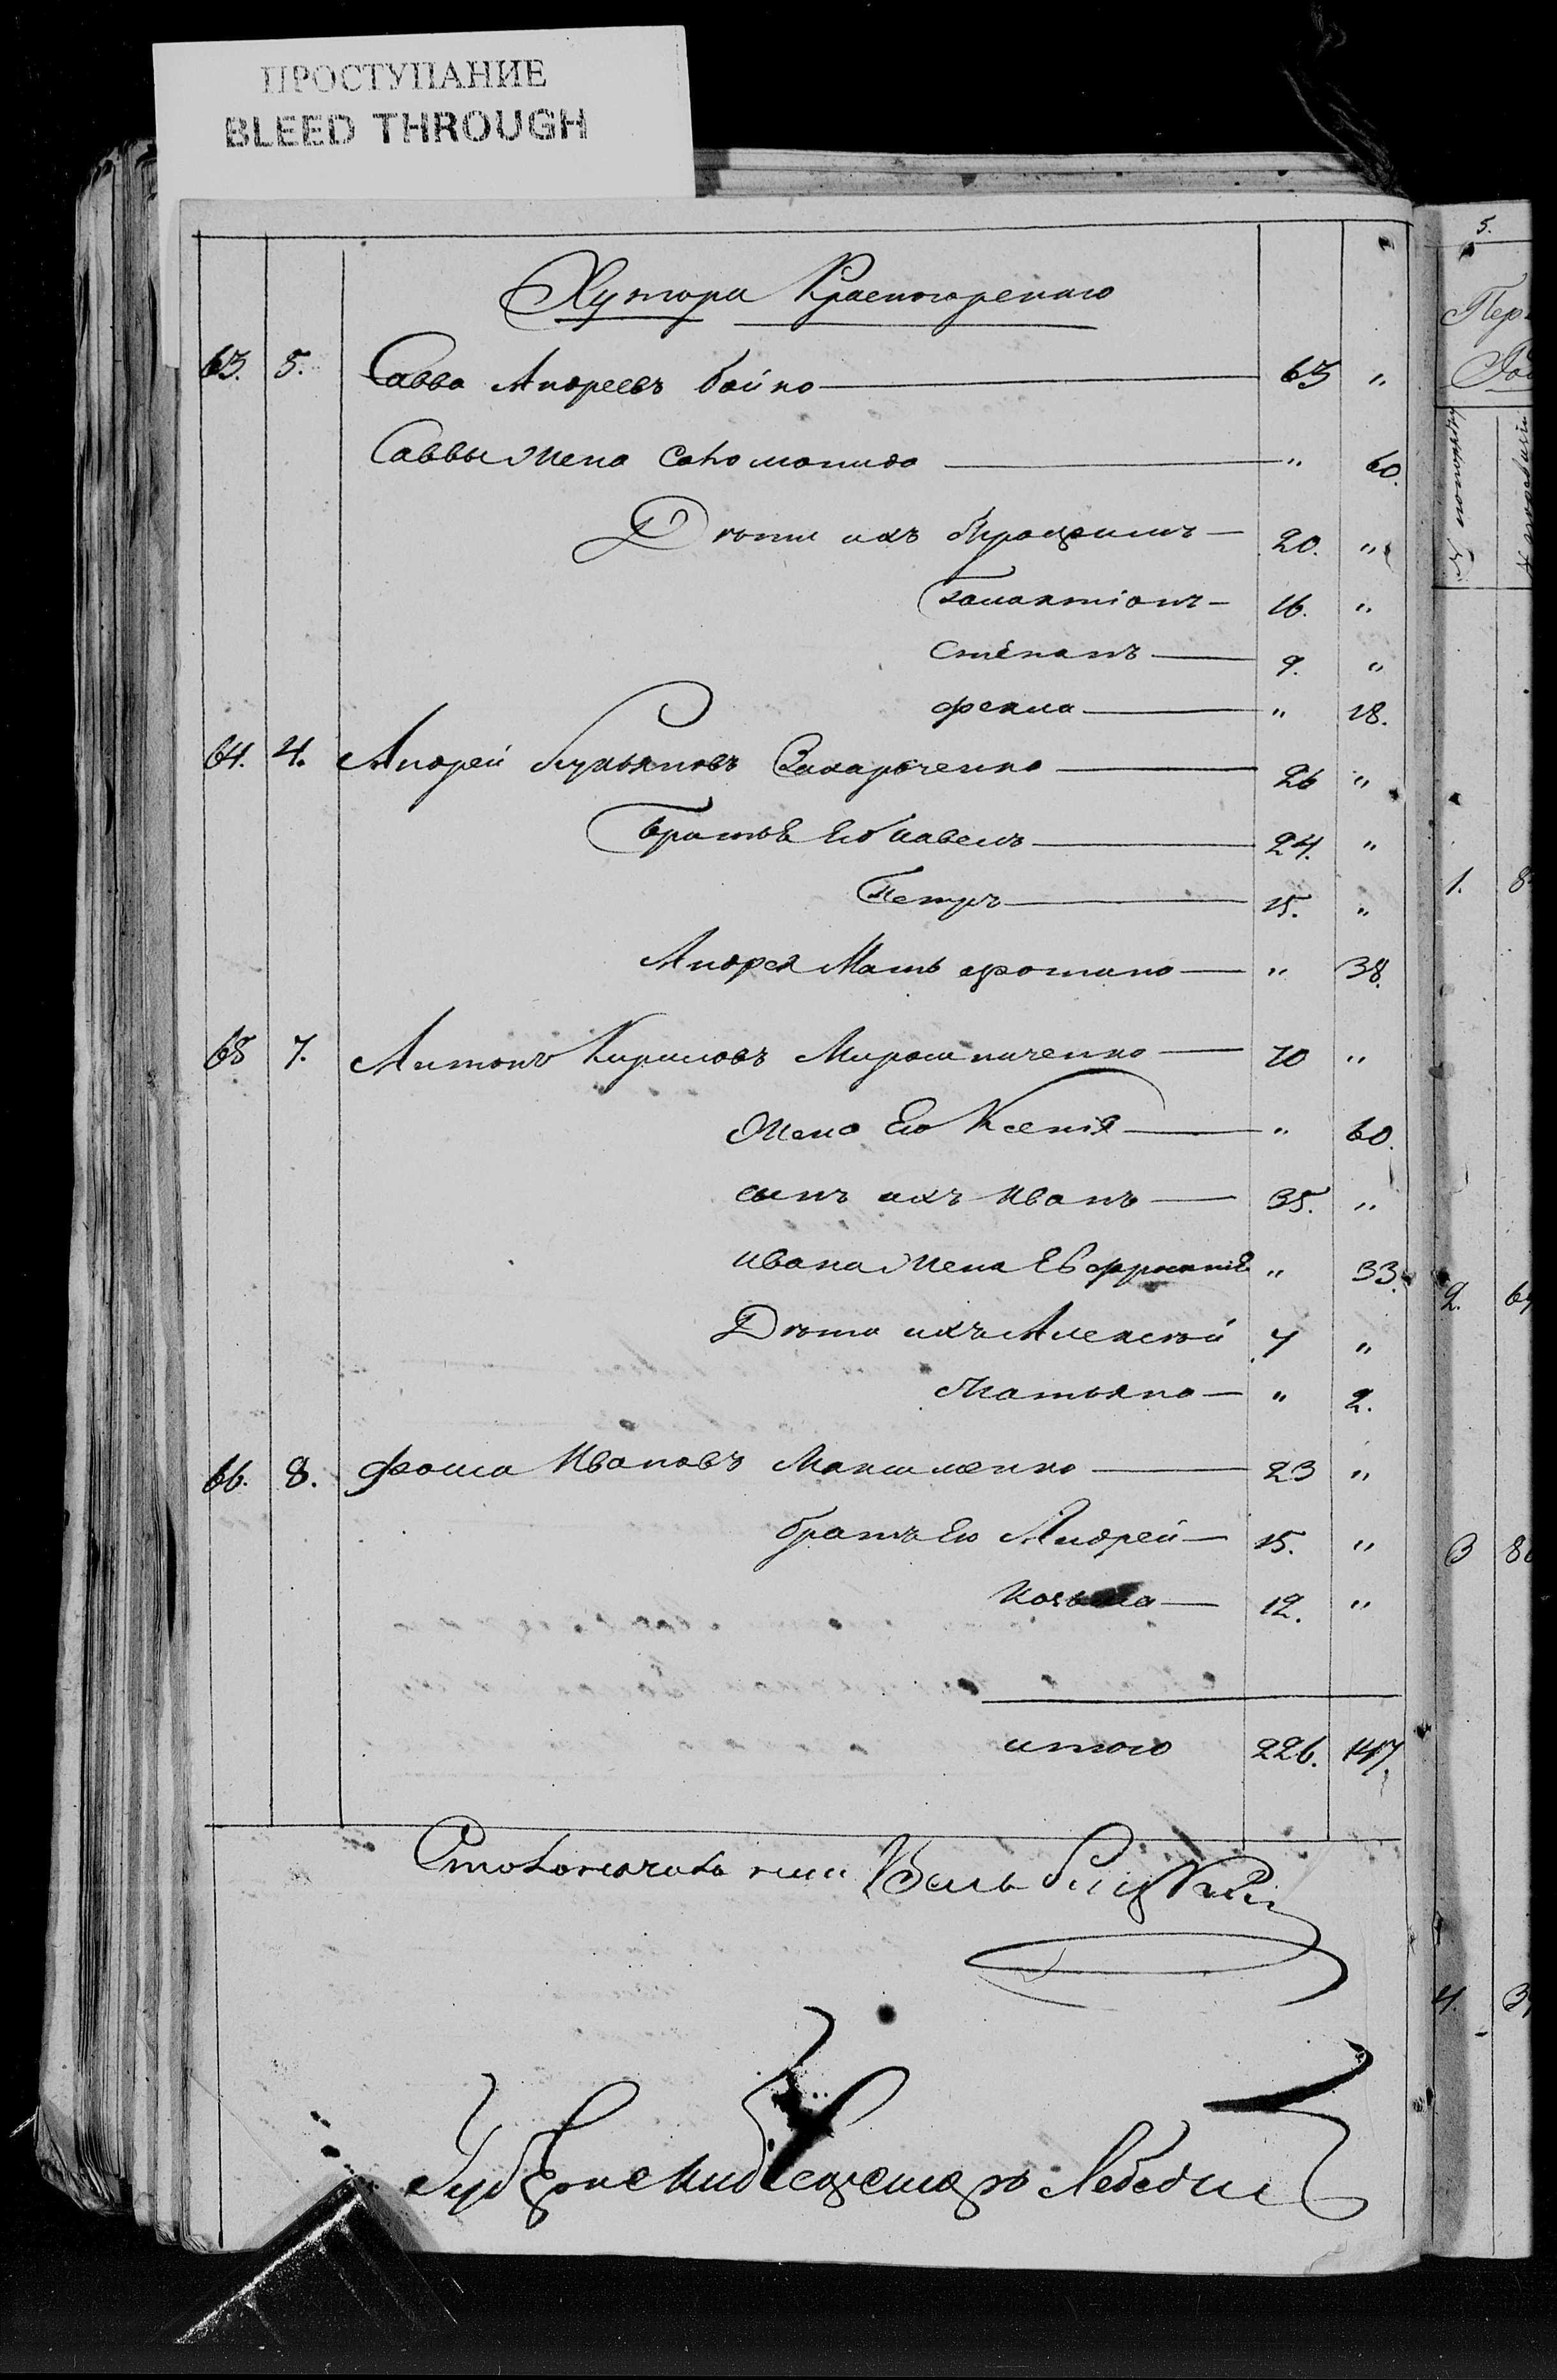 ПРОСТУПАНИЕ
BLEED THROUGH
Хутора Красногорскаго
63. 5. Савва Андреевъ Бойко 63 "
Саввы жена Соломонида " 60.
Дѣти ихъ Трофимъ 20. "
Галактіонъ 16. "
Степанъ 9. "
Фекла " 18.
64. 4. Андрей Лукьяновъ Захарченко 26 "
Братья Его Павелъ 24. "
Петръ 15. "
Андрея Мать 38.
65 7. Антонъ Кириловъ Мирошниченко 70 "
Жена Его Ксенія " 60.
сынъ ихъ Иванъ 35. "
Ивана Жена Евфросинія " 33.
Дѣти ихъ Алексѣй 7 "
Татьяна " 2.
66. 8. Фома Ивановъ Максименко 23 "
братья Его Андрей 15. "
Козьма 12. "
итого 226. 147.
Столоначальникъ
Губернскій Лебеди
5.
Пер
1. 8
2. 6
3 8
4. 3